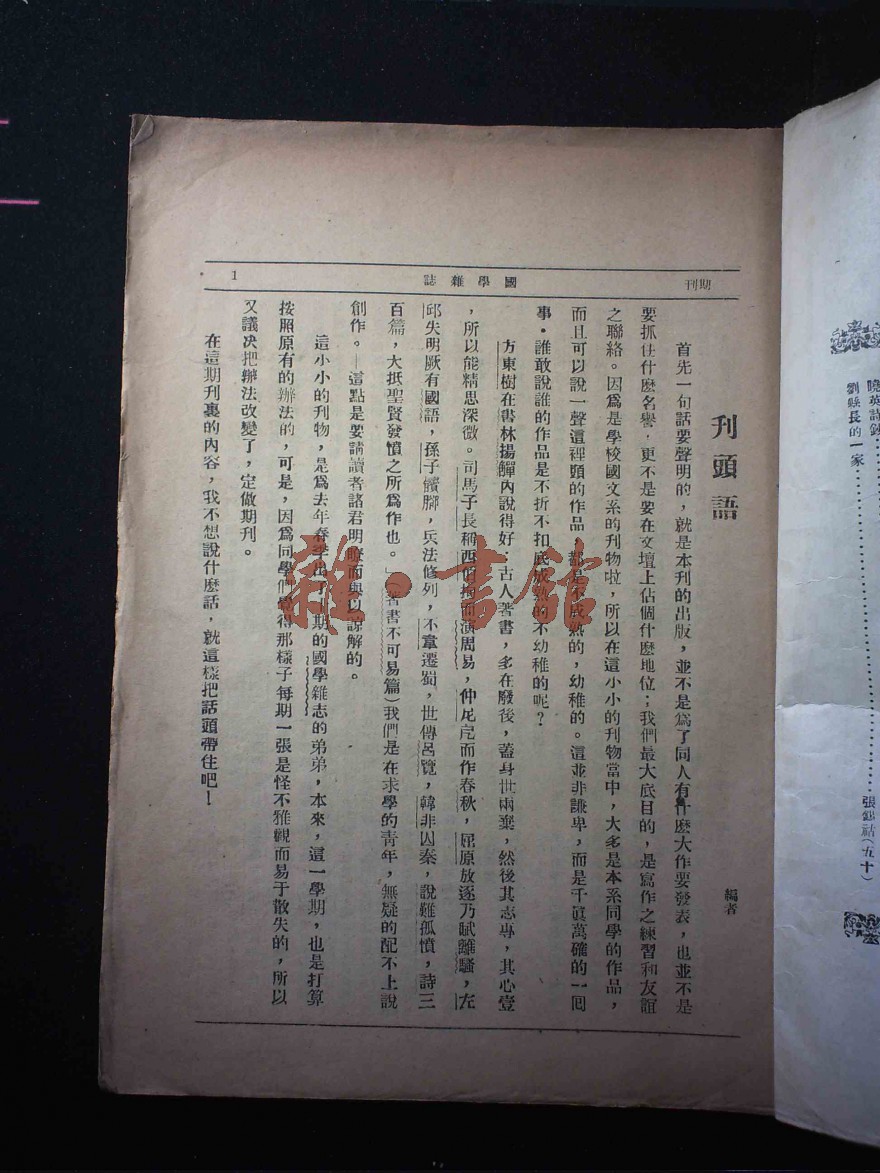 期刊
國學雜誌
1
刊頭語
編者
首先一句話要聲明的，就是本刊的出版，並不是爲了同人有什麼大作要發表，也並不是
要抓住什麼名譽，更不是要在文壇上佔個什麼地位；我們最大底目的，是寫作之練習和友誼
之聯絡。因爲是學校國文系的刊物啦，所以在這小小的刊物當中，大多是本系同學的作品，
而且可以說一聲這裡頭的作品 都是不成熟的，幼稚的。這並非謙卑，而是千眞萬確的一囘
事・誰敢說誰的作品是不折不扣底成熟的不幼稚的呢？
方東樹在書林揚觶內說得好：古人著書，多在廢後，蓋身世兩棄，然後其志專，其心壹
，所以能精思深微。司馬子長稱西伯拘而演周易，仲尼戹而作春秋，屈原放逐乃賦離騷，左
邱失明厥有國語，孫子臏脚，兵法修列，不韋遷蜀，世傳呂覽，韓非囚秦，說難孤憤，詩三
百篇，大抵聖賢發憤之所爲作也。」（著書不可易篇）我們是在求學的青年，無疑的配不上說
創作。—這點是要請讀者諸君明瞭而與以諒解的。
這小小的刊物，是爲去年春季出了 期的國學雜志的弟弟，本來，這一學期，也是打算
按照原有的辦法的，可是，因爲同學們覺得那樣子每期一張是怪不雅觀而易于散失的，所以
又議决把辦法改變了，定做期刊。
在這期刊裏的內容，我不想說什麼話，就這樣把話頭帶住吧！
雜・書館
詩鈔
劉縣長的一家
張 祜（五十）